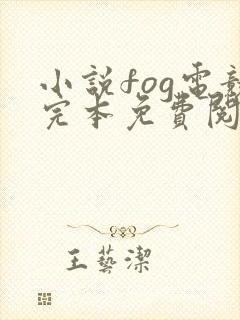 小說fog電競
完本免費閱
王藝潔